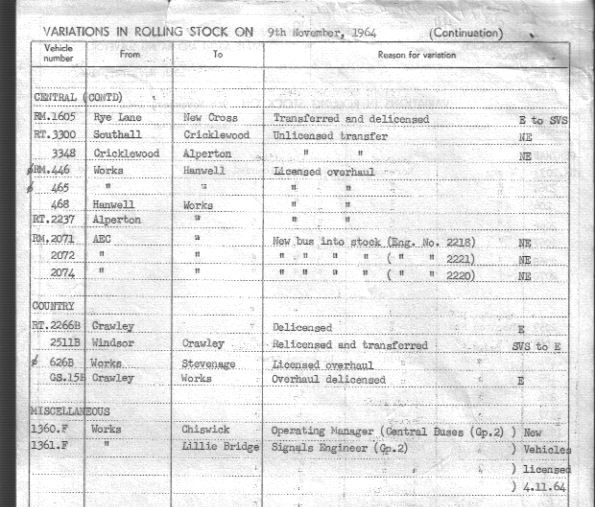 VARIATIONS IN ROLLING STOCK ON 9th November, 1964 (Continuation)
Vehicle number From To Reason for variation
CENTRAL (CONTD)
RM.1605 Rye Lane New Cross Transferred and delicensed E to SVS
RT.3300 Southall Cricklewood Unlicensed transfer NE
3348 Cricklewood Alperton " " NE
RM.446 Works Hanwell Licensed overhaul
465 " " " "
468 Hanwell Works " "
RT.2237 Alperton " " "
RM.2071 AEC " New bus into stock (Eng. No. 2218) NE
2072 " " " " " " ( " " 2221) NE
2074 " " " " " " ( " " 2220) NE
COUNTRY
RT.2266B Crawley Delicensed E
2511B Windsor Crawley Relicensed and transferred SVS to E
626B Works Stevenage Licensed overhaul
GS.15B Crawley Works Overhaul delicensed E
MISCELLANEOUS
1360.F Works Chiswick Operating Manager (Central Buses (Gp.2) ) New
1361.F " Lillie Bridge Signals Engineer (Gp.2) ) Vehicles
) licensed
) 4.11.64